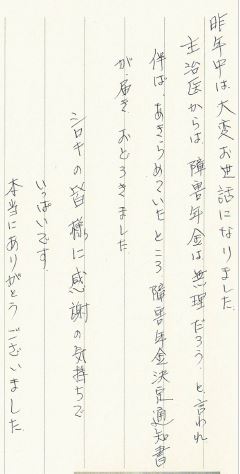 昨年中は大変お世話になりました
主治医からは障害年金は無理だろう、と言われ
半ば、あきらめていたところ 障害年金決定通知書
が、届き、おどろきました
シロキの皆様に感謝の気持ちで
いっぱいです
本当にありがとうございました